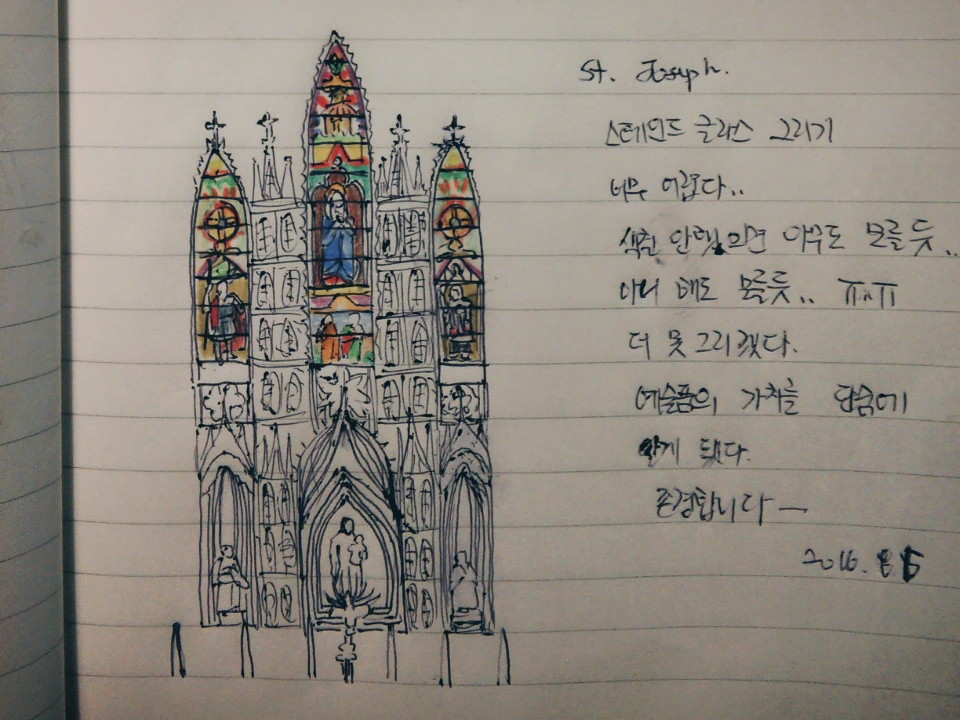 St. Joseph.
스테인드 글라스 그리기
너무 어렵다..
색칠 안했으면 아무도 모를듯..
아니 해도 모를듯.. ㅠㅅㅠ
더 못 그리겠다.
예술품의 가치를 단숨에
알게 됐다.
존경합니다 —
2016. 8